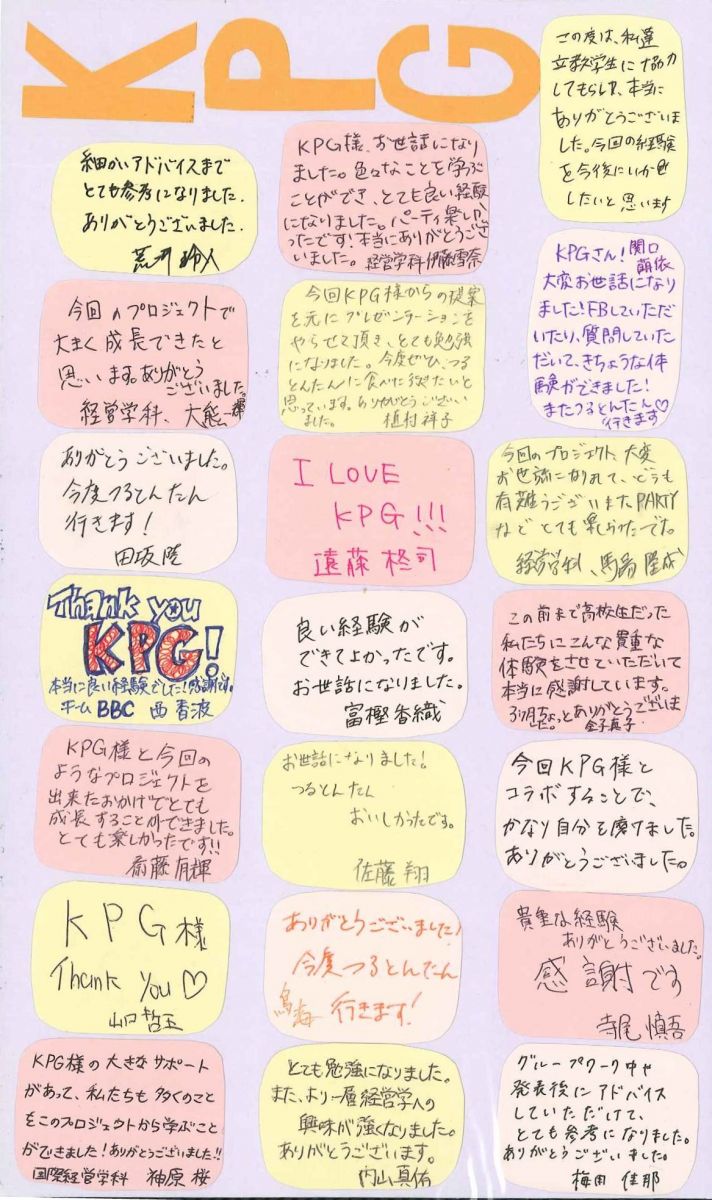 KPG
この度は、私達
立教大学生に協力
してもらい、本当に
ありがとうございま
した。今回の経験
を今後にいか
したいと思います
細かいアドバイスまで
とても参考になりました。
ありがとうございました。
荒井
KPG様、お世話になり
ました。色々なことを学ぶ
ことができ、とても良い経験
になりました。パーティ楽しか
ったです!本当にありがとうござ
いました。経営学科 伊藤雪奈
KPGさん! 関口
萌依
大変お世話になり
ました!FBしていただ
いたり、質問していた
だいて、きちょうな体
験ができました!
またつるとんたん♡
行きます
今回のプロジェクトで
大きく成長できたと
思います。ありがとう
ございました。
経営学科、大熊
今回KPG様からの提案
を元にプレゼンテーションを
やらせて頂き、とても勉強
になりました。今度ぜひ、つる
とんたんに食べに行きたいと
思っています。ありがとうござい
ました。 植村祥子
ありがとうございました。
今度つるとんたん
行きます!
田坂陸
I LOVE
KPG!!!
遠藤柊司
今回のプロジェクト、大変
お世話になりまして、どうも
有難うございます。PARTY
などとても楽しかったです。
経営学科、馬場
Thank you
KPG!
本当に良い経験でした!感謝です。
チームBBC 西 春波
良い経験が
できてよかったです。
お世話になりました。
富樫香織
この前まで高校生だった
私たちにこんな貴重な
体験をさせていただいて
本当に感謝しています。
3ヶ月ちょっとありがとうございま
した。 金子真子
KPG様と今回の
ようなプロジェクトを
出来たおかげでとても
成長することができました。
とても楽しかったです!!
斎藤有輝
お世話になりました!
つるとんたん
おいしかったです。
佐藤 翔
今回KPG様と
コラボすることで、
かなり自分を磨けました。
ありがとうございました。
KPG様
Thank You♡
山口哲玉
ありがとうございました!
今度つるとんたん
鳥海 行きます!
貴重な経験
ありがとうございました。
感謝です
寺尾慎吾
KPG様の大きなサポート
があって、私たちも多くのこと
をこのプロジェクトから学ぶこと
ができました!ありがとうございました!!
国際経営学科 神原 桜
とても勉強になりました。
また、より一層経営学への
興味が強くなりました。
ありがとうございます。
内山真佑
グループワーク中や
発表後にアドバイス
していただけて、
とても参考になりました。
ありがとうございました。
梅田 佳那